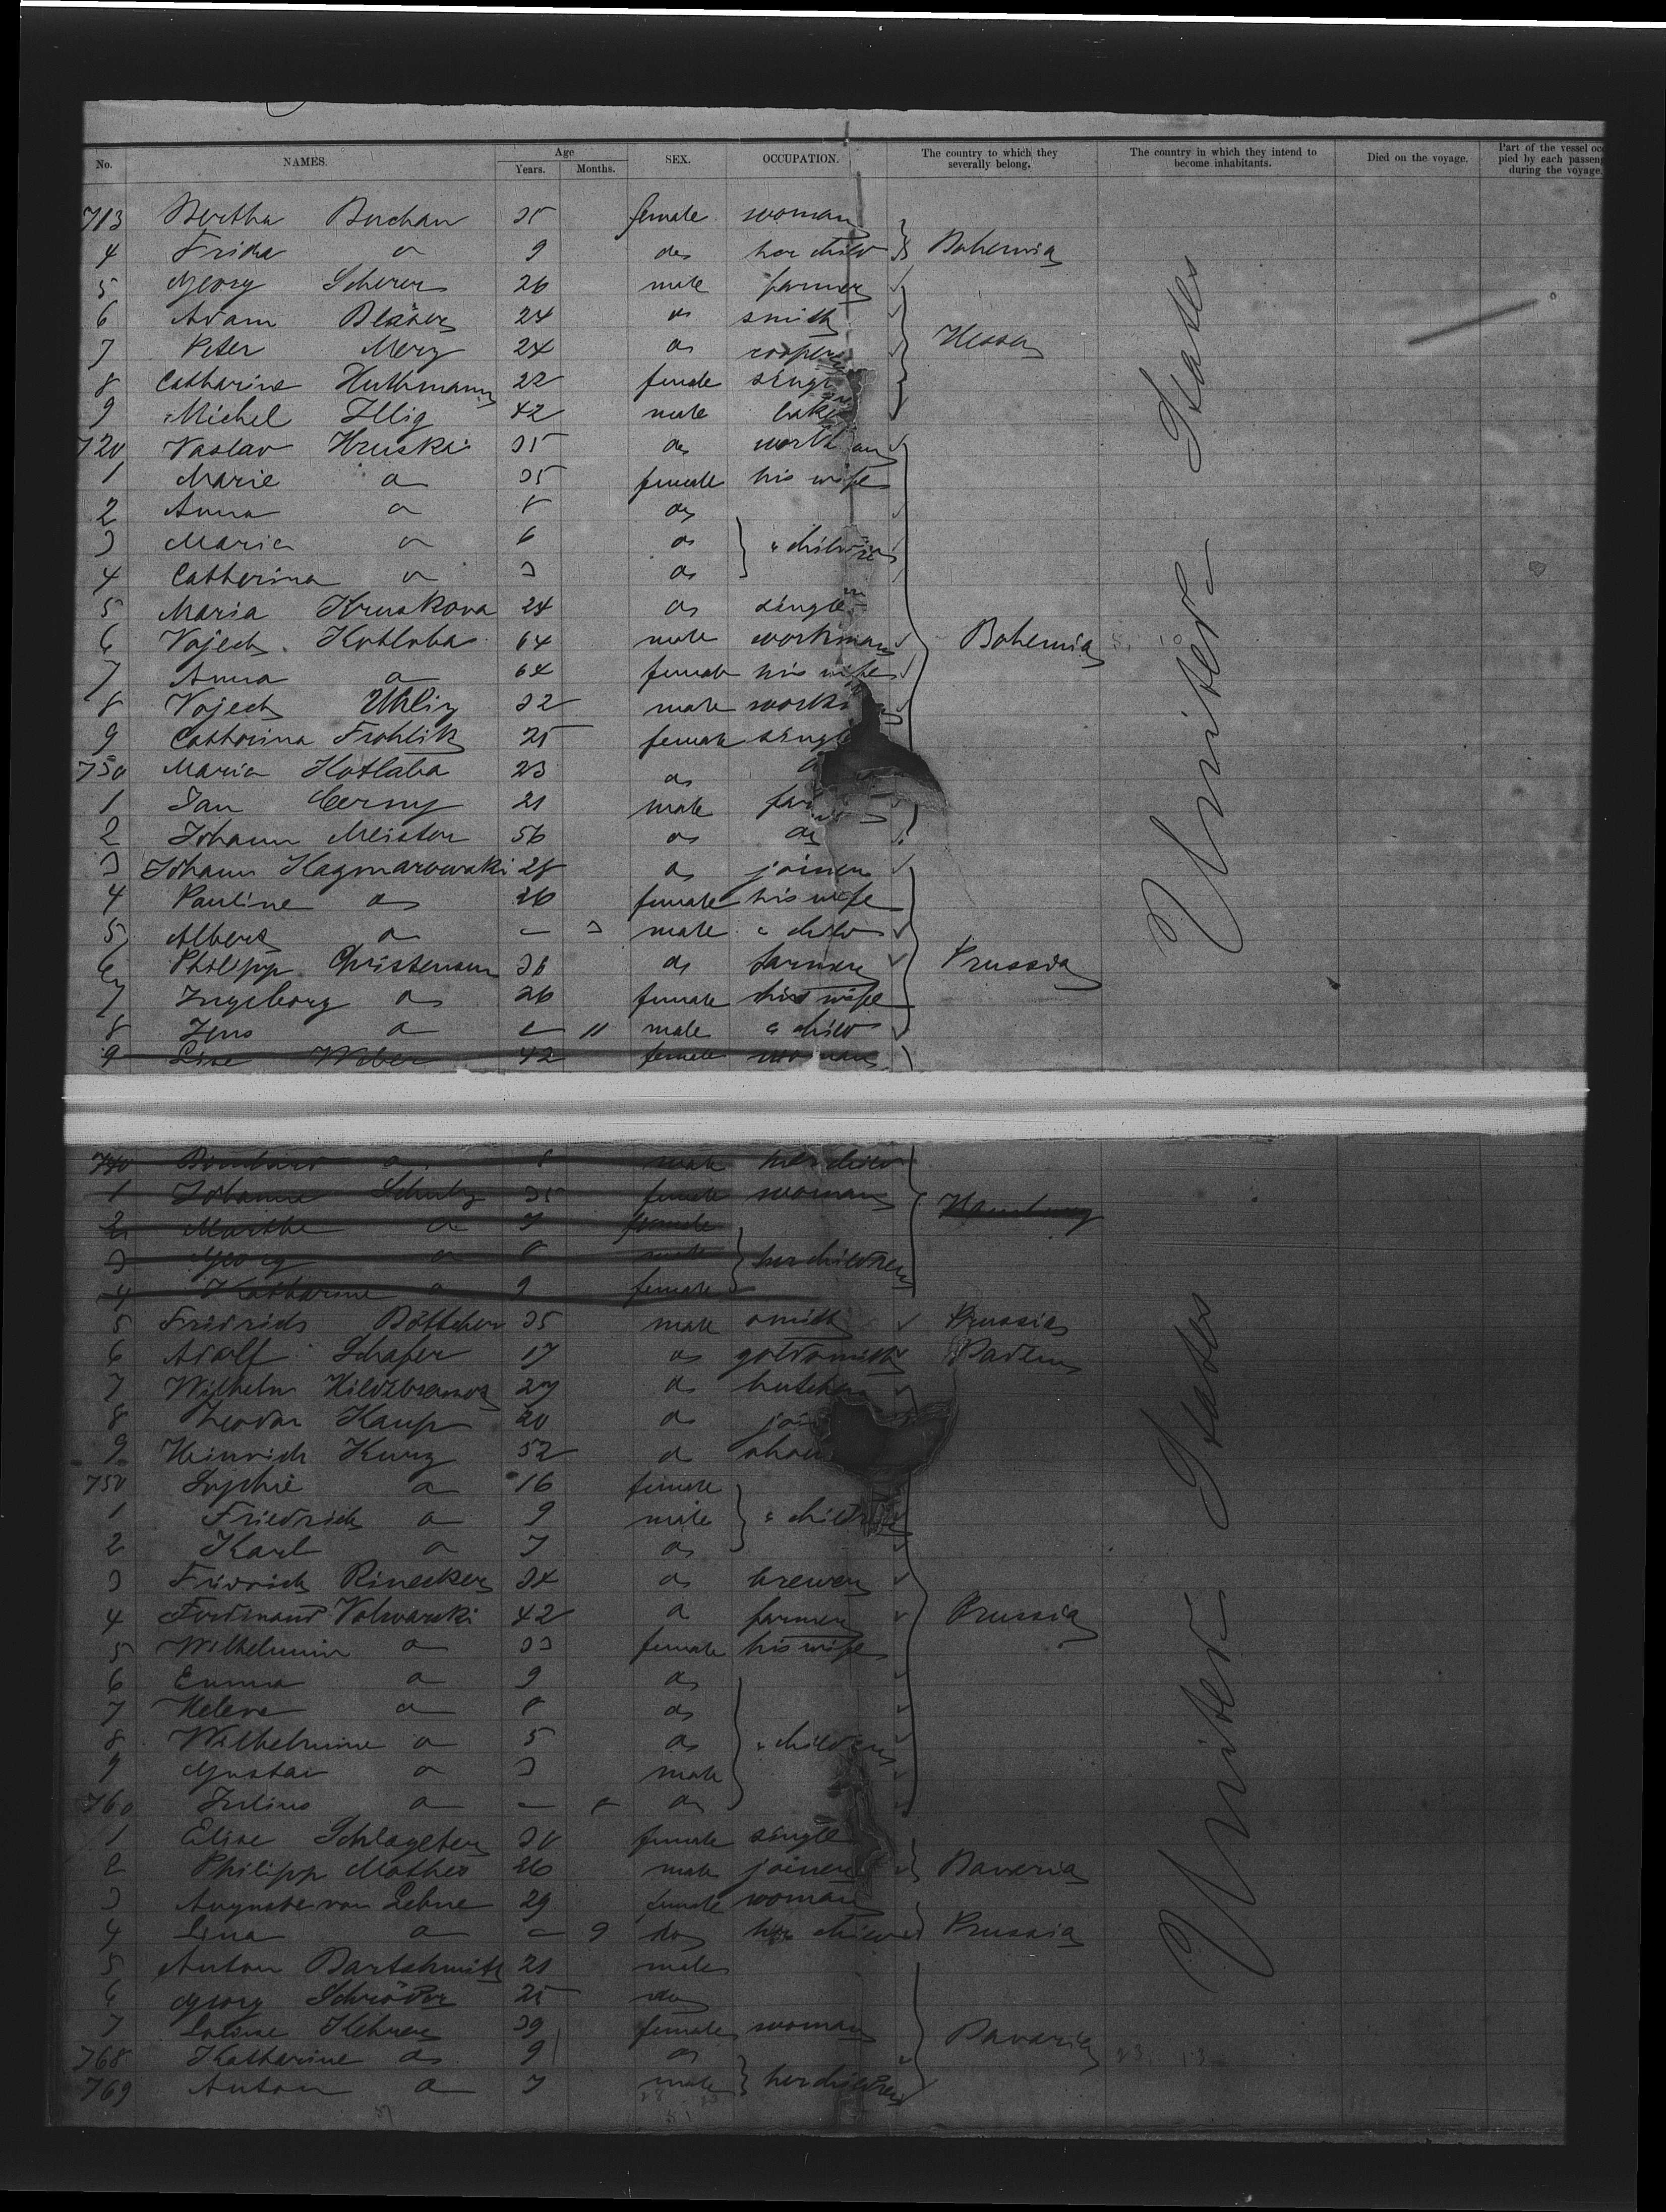 No. NAMES. Age Years. Months. SEX. OCCUPATION. The country to which they severally belong. The country in which they intend to become inhabitants. Died on the voyage. Part of the vessel occupied by each passenger during the voyage.
713 Bertha Buchan 35 female woman
4 Frida do 9 do her child Bohemia
5 Georg Scherer 26 male farmer
6 Adam Bläser 24 do smith
7 Peter Merz 24 do cooper Hessen
8 Catharine Huthmann 22 female single
9 Michel Illig 42 male baker
720 Vaslav Hruska 35 do workman
1 Marie do 35 female his wife
2 Anna do 8 do
3 Maria do 6 do " children
4 Catherina do 3 do
5 Maria Hruskova 24 do single
6 Vojech Kotlaba 64 male workman Bohemia
7 Anna do 64 female his wife
8 Vojech Uhlir 32 male work
9 Catharina Frohlik 25 female single
730 Maria Kotlaba 23 do
1 Jan Cerny 21 male far
2 Johann Meister 56 do do
3 Johann Kagmarowski 28 do joiner
4 Pauline do 26 female his wife
5 Albert do — 3 male " child
6 Philipp Christensen 36 do farmer Prussia
7 Ingeborg do 26 female his wife
8 Jens do — 11 male " child
9 Line Weber 42 female woman
740 do 8 male her child
1 Johanne Schulz 35 female woman Hamburg
2 Marthe do 7 female
3 Georg do 8 male her children
4 Katharine do 9 female
5 Fridrich Böttcher 35 male smith Prussia
6 Adolf Schafer 17 do goldsmith Baden
7 Wilhelm Hildebrandt 27 do butcher
8 Theodor Kaup 20 do joi
9 Heinrich Kurz 52 do shoe
750 Sophie do 16 female
1 Friedrich do 9 male " children
2 Karl do 7 do
3 Fridrich Rinecker 34 do brewer
4 Ferdinand Volwarski 42 do farmer Prussia
5 Wilhelmin do 33 female his wife
6 Emma do 9 do
7 Helene do 8 do
8 Wilhelmine do 5 do " children
9 Gustav do 3 male
760 Julius do — 8 do
1 Elise Schlageter 30 female single
2 Philipp Mathes 26 male joiner Baveria
3 Auguste von Lehne 29 female woman
4 Lina do — 9 do her child Prussia
5 Anton Bartschmitz 21 male
6 Georg Schröder 25 do
7 Louise Kehrer 39 female woman Bavaria
768 Katharine do 9 do
769 Anton do 7 male her children
United States
United States